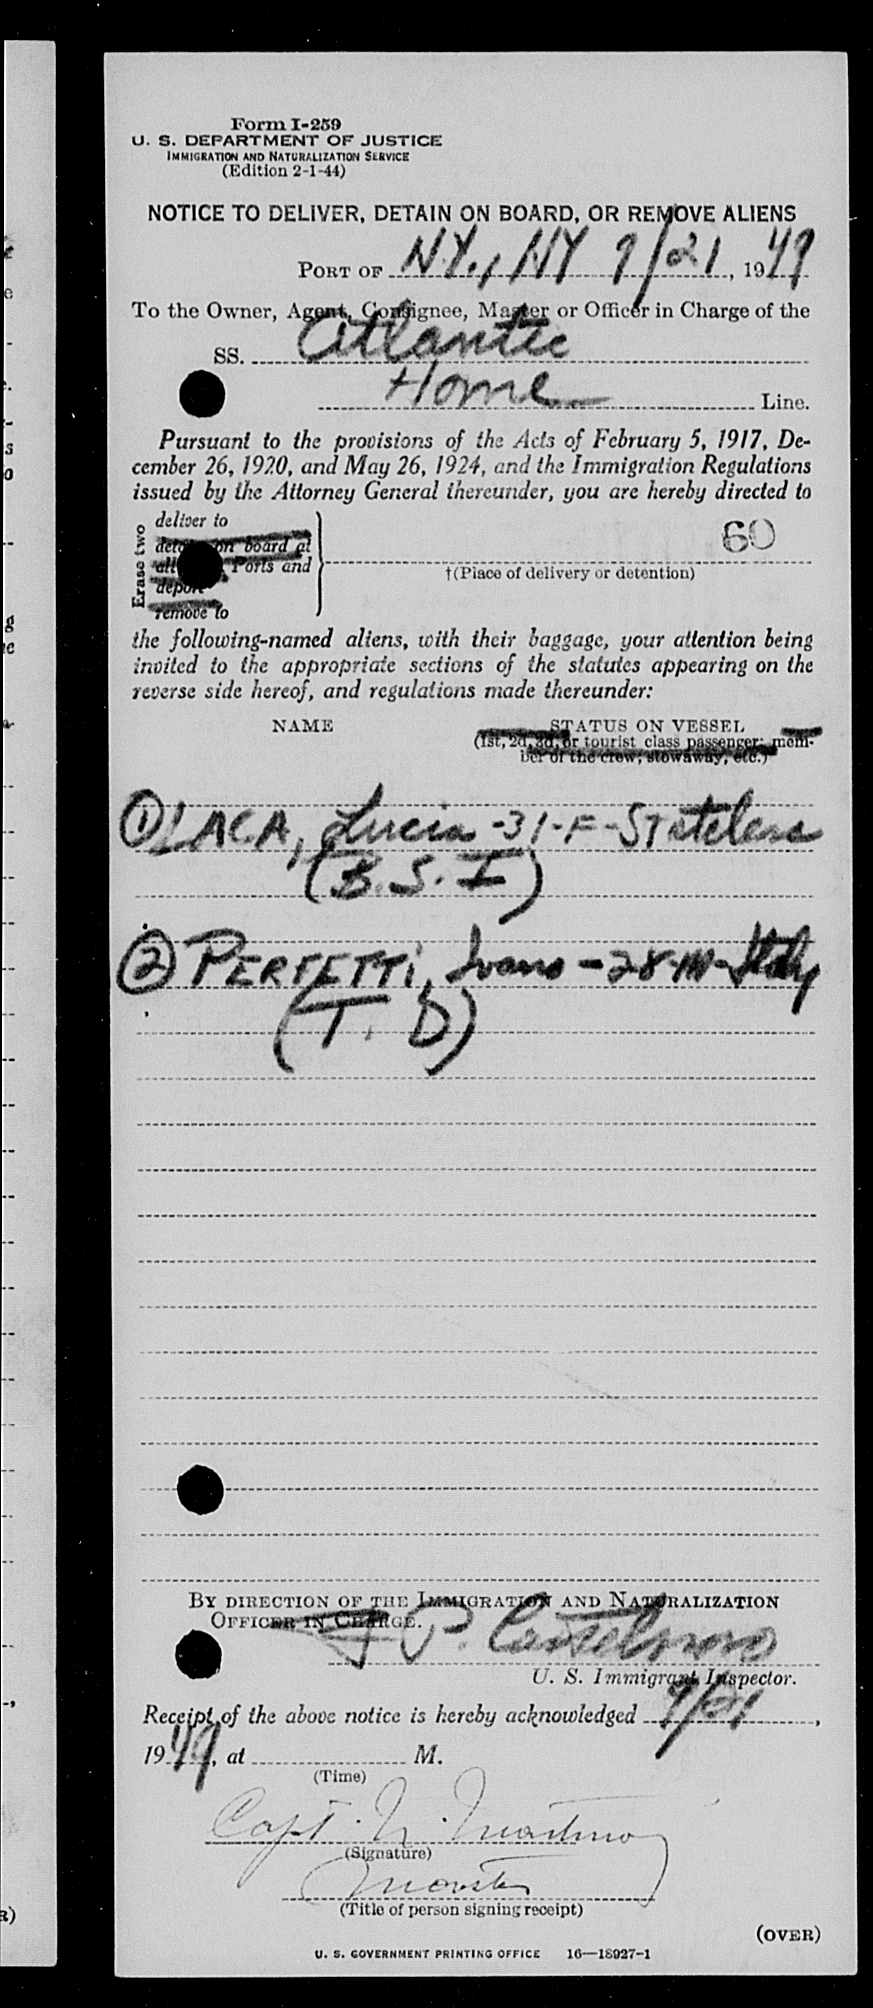 Form I-259
U. S. DEPARTMENT OF JUSTICE
IMMIGRATION AND NATURALIZATION SERVICE
(Edition 2-1-44)
NOTICE TO DELIVER, DETAIN ON BOARD, OR REMOVE ALIENS
PORT OF N.Y., NY 9/21, 1949
To the Owner, Agent, Consignee, Master or Officer in Charge of the
SS. Atlantic
Home Line.
Pursuant to the provisions of the Acts of February 5, 1917, De-
cember 26, 1920, and May 26, 1924, and the Immigration Regulations
issued by the Attorney General thereunder, you are hereby directed to
Erase two
deliver to
60
on board at
Ports and
†(Place of delivery or detention)
deport
remove to
the following-named aliens, with their baggage, your attention being
invited to the appropriate sections of the statutes appearing on the
reverse side hereof, and regulations made thereunder:
NAME STATUS ON VESSEL
(1st, 2d, 3d, or tourist class passenger; mem-
ber of the crew; stowaway, etc.)
① LACA, Lucia -31-F-Stateless
(B.S.I)
② PERFETTi, Ivano -28-M-Italy
(T.D)
BY DIRECTION OF THE IMMIGRATION AND NATURALIZATION
OFFICER IN CHARGE.
P.
U. S. Immigrant Inspector.
Receipt of the above notice is hereby acknowledged 9/21,
1949, at M.
(Time)
Capt. N.
(Signature)
Master
(Title of person signing receipt)
(OVER)
U. S. GOVERNMENT PRINTING OFFICE 16—18927-1